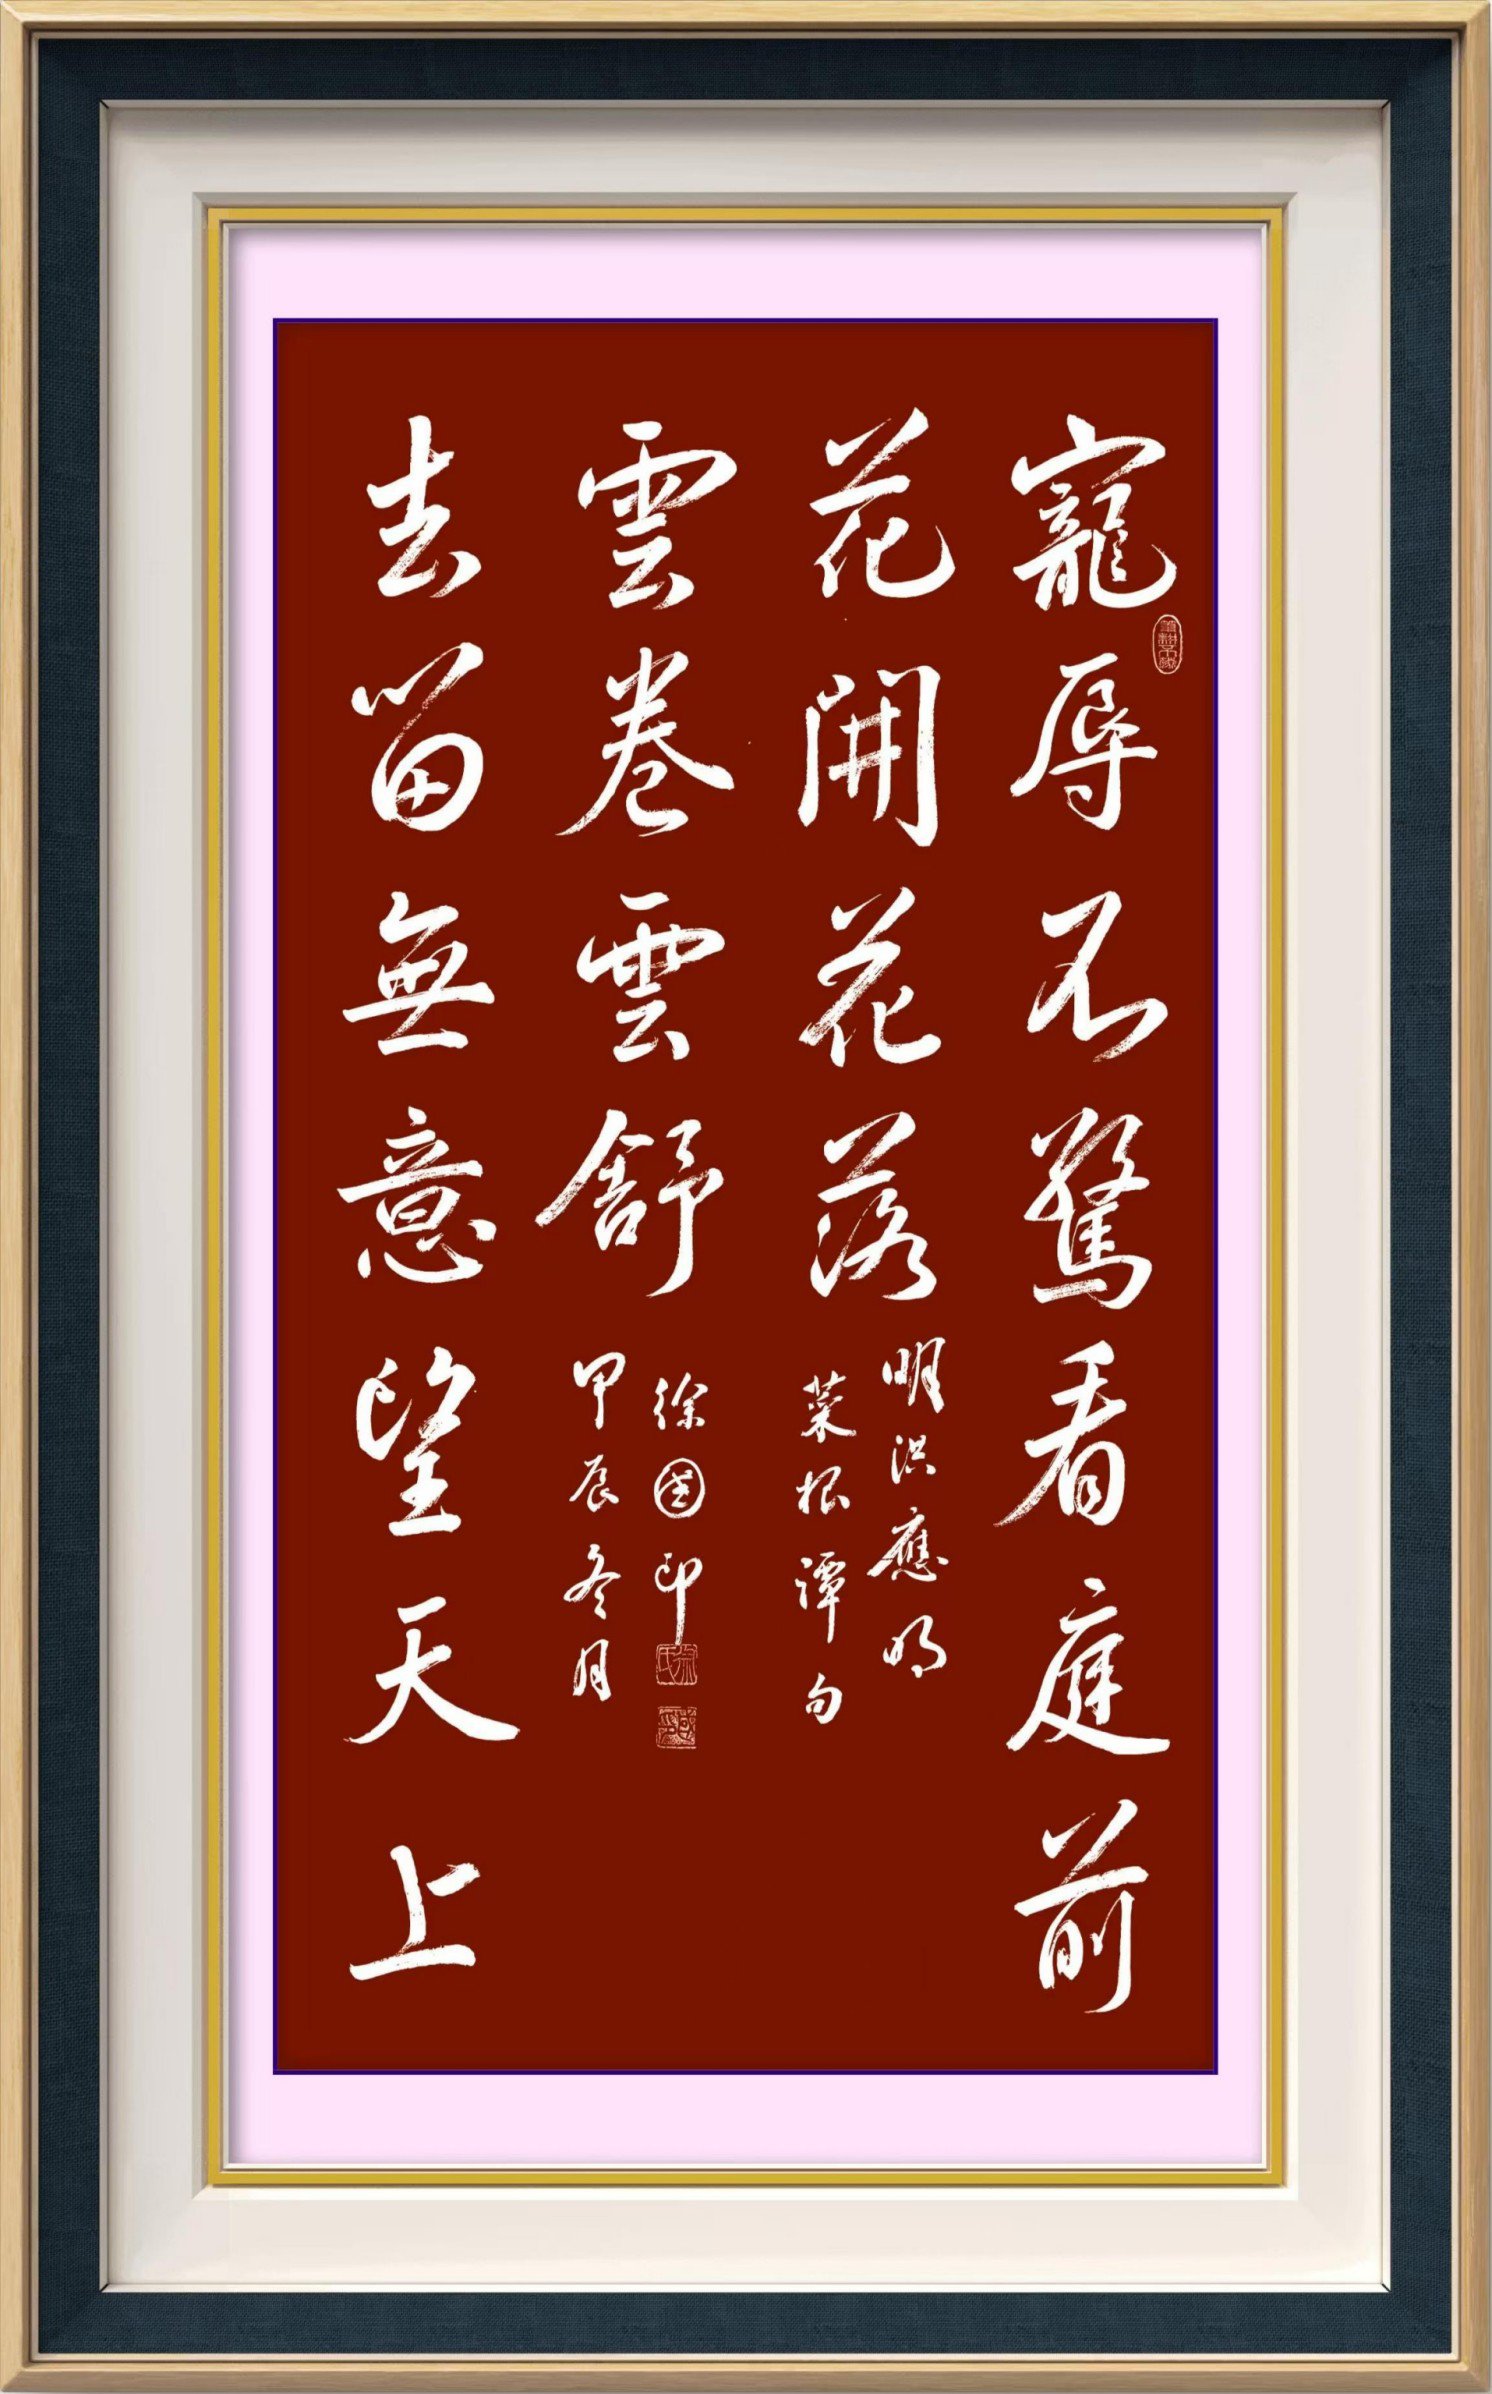 寵辱不驚看庭前
花開花落
明洪應明
菜根譚句
去留無意望天上
雲卷雲舒
徐國印
甲辰冬月
徐氏